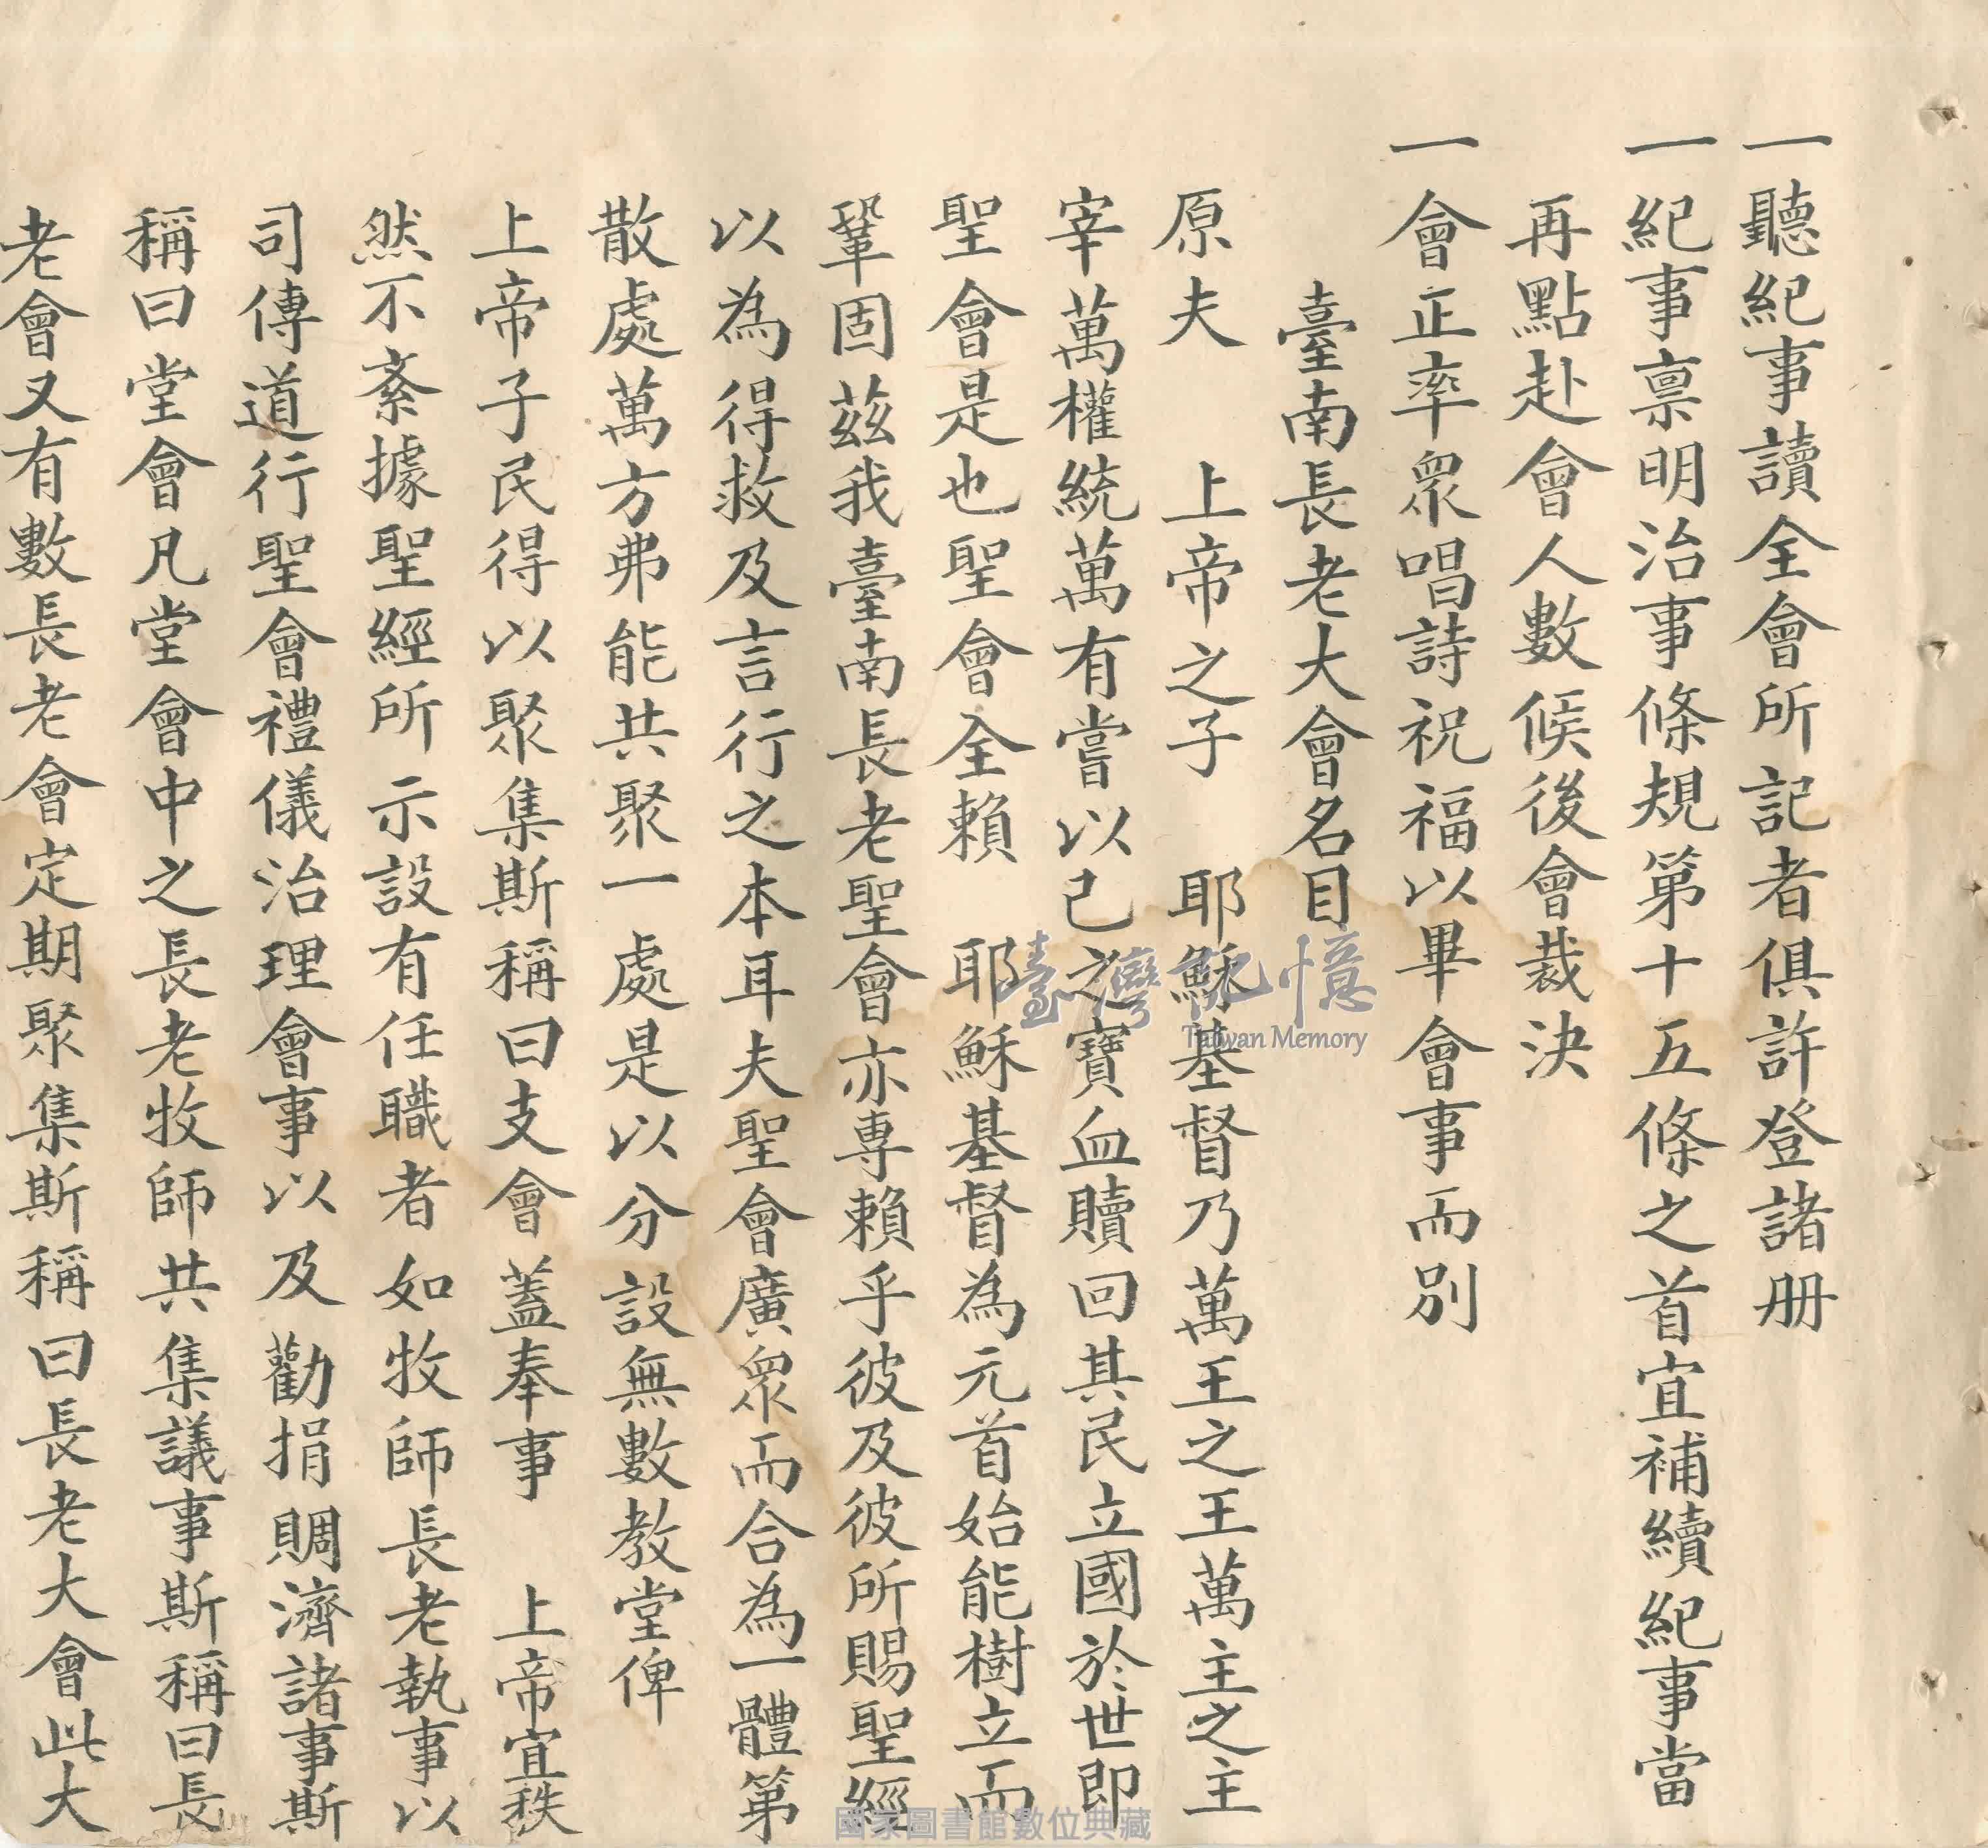 一聽紀事讀全會所記者俱許登諸册
一紀事禀明治事條規第十五條之首宜補續紀事當
再點赴會人數候後會裁決
一會正率眾唱詩祝福以畢會事而別
臺南長老大會名目
原夫　上帝之子　耶穌基督乃萬王之王萬主之主
宰萬權統萬有嘗以己之寶血贖回其民立國於世即
聖會是也聖會全賴　耶穌基督為元首始能樹立而
鞏固茲我臺南長老聖會亦專賴乎彼及彼所賜聖經
以為得救及言行之本耳夫聖會廣眾而合為一體第
散處萬方弗能共聚一處是以分設無數教堂俾
上帝子民得以聚集斯稱曰支會蓋奉事　上帝宜秩
然不紊據聖經所示設有任職者如牧師長老執事以
司傳道行聖會禮儀治理會事以及勸捐賙濟諸事斯
稱曰堂會凡堂會中之長老牧師共集議事斯稱曰長
老會又有數長老會定期聚集斯稱曰長老大會此大
臺灣記憶
Taiwan Memory
國家圖書館數位典藏